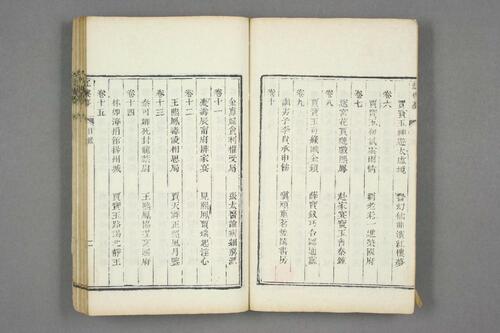 紅樓夢
賈寶玉神遊太虛境　警幻仙曲演紅樓夢
卷六
賈寶玉初試雲雨情　劉老老一進榮國府
卷七
送宮花賈璉戲熙鳳　赴家宴寶玉會秦鍾
卷八
賈寶玉奇緣識金鎖　薛寶釵巧合認通靈
卷九
訓劣子李貴承申飭　嗔頑童茗烟鬧書房
卷十
金寡婦貪利權受辱　張太醫論病細窮源
卷十一
慶壽辰甯府排家宴　見熙鳳賈瑞起淫心
卷十二
王熙鳳毒設相思局　賈天祥正照風月鑑
卷十三
秦可卿死封龍禁尉　王熙鳳協理寧國府
卷十四
林如海捐館揚州城　賈寶玉路謁北靜王
卷十五
紅樓夢
目錄